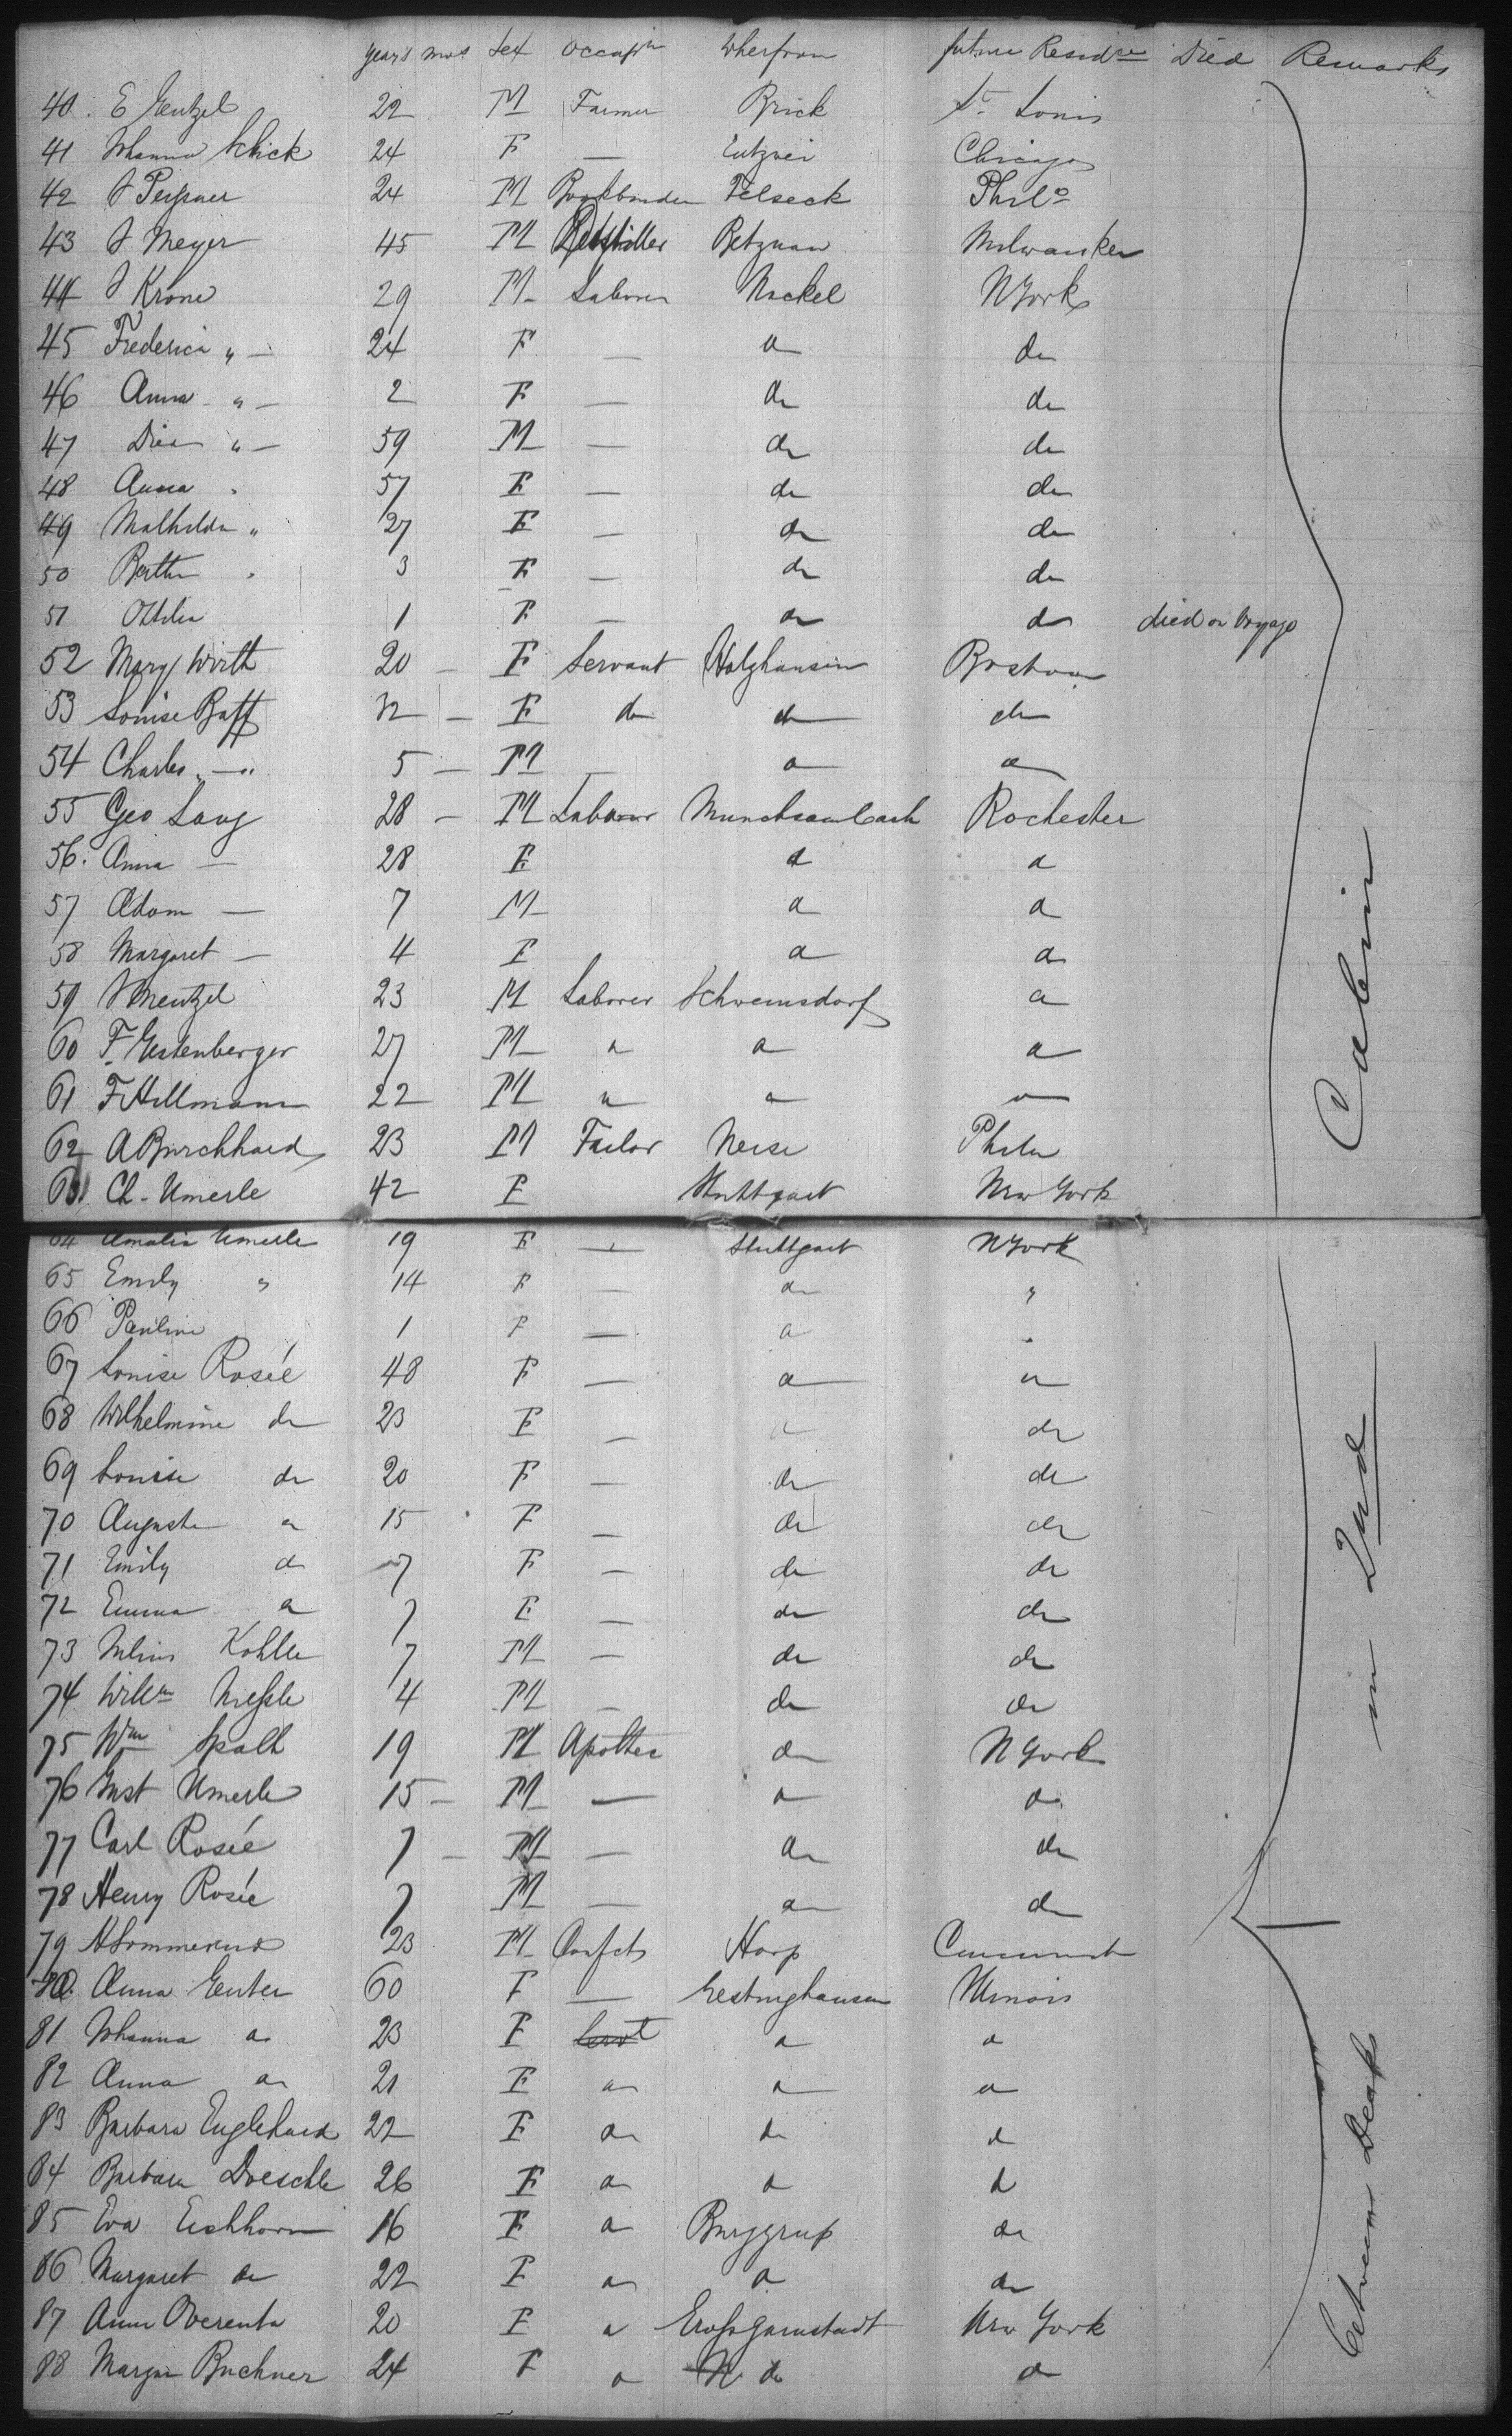 years mos Sex Occupn Wherfrom future Residce Died Remarks
40. E Gentzel 22 M Farmer Brick St. Louis
41 Johanna Schick 24 F — Chicago
42 24 M Bookbinder Velseck Phila
43 J Meyer 45 M Betznau Milwaukee
44 J Krone 29 M Laborer Nackel NYork
45 Frederica " — 24 F — do do
46 Anna " — 2 F — do do
47 " — 59 M — do do
48 Anna " 57 F — do do
49 Mathilda " 27 F — do do
50 Bertha " 3 F — do do
51 Ottilia 1 F — do do died on Voyage
52 Mary Wirth 20 — F Servant Holzhausen Boston
53 Louise Baff — F do do do
54 Charles " — " 5 — M — do do
55 Geo Lang 28 — M Laborer Rochester
56. Anna — 28 F do do
57 Adam — 7 M do do
58 Margaret — 4 F do do
59 J Mentzel 23 M Laborer Schweinsdorf do
60 F. Gestenberger 27 M do do do
61 F Hillmann 22 M do do do
62 A Burchhard 23 M Tailor Neise Phila
63 Ch. Umerle 42 F Stuttgart New York
Cabin
64 Amalia Umerle 19 F — Stuttgart NYork
65 Emily " 14 F — do "
66 Pauline 1 F — do "
67 Louise Roseé 48 F — do do
68 Wilhelmine do 23 F — do do
69 Louise do 20 F — do do
70 Auguste do 15 F — do do
71 Emily do 7 F — do do
72 Emma do 7 F — do do
73 Julius Kohlle 7 M — do do
74 Willm Nießle 4 M — do do
75 Wm Spalt 19 M Apothec do NYork
76 Gust Umerle 15 — M — do do
77 Carl Roseé 7 — M — do do
78 Henry Roseé 7 M — do do
79 23 M Confect Harp Cincinnati
80. Anna Genter 60 F — Gestinghausen Illinois
81 Johanna do 23 F Servt do do
82 Anna do 21 F do do do
83 Barbara Englehard 22 F do do do
84 Barbara Doeschle 26 F do do do
85 Eva Eichhorn 16 F do Burggrup do
86 Margaret do 22 F do do do
87 Anna Overenta 20 F do Großgarnstadt New York
88 Margar Buchner 24 F do do do
in 2nd
between Decks